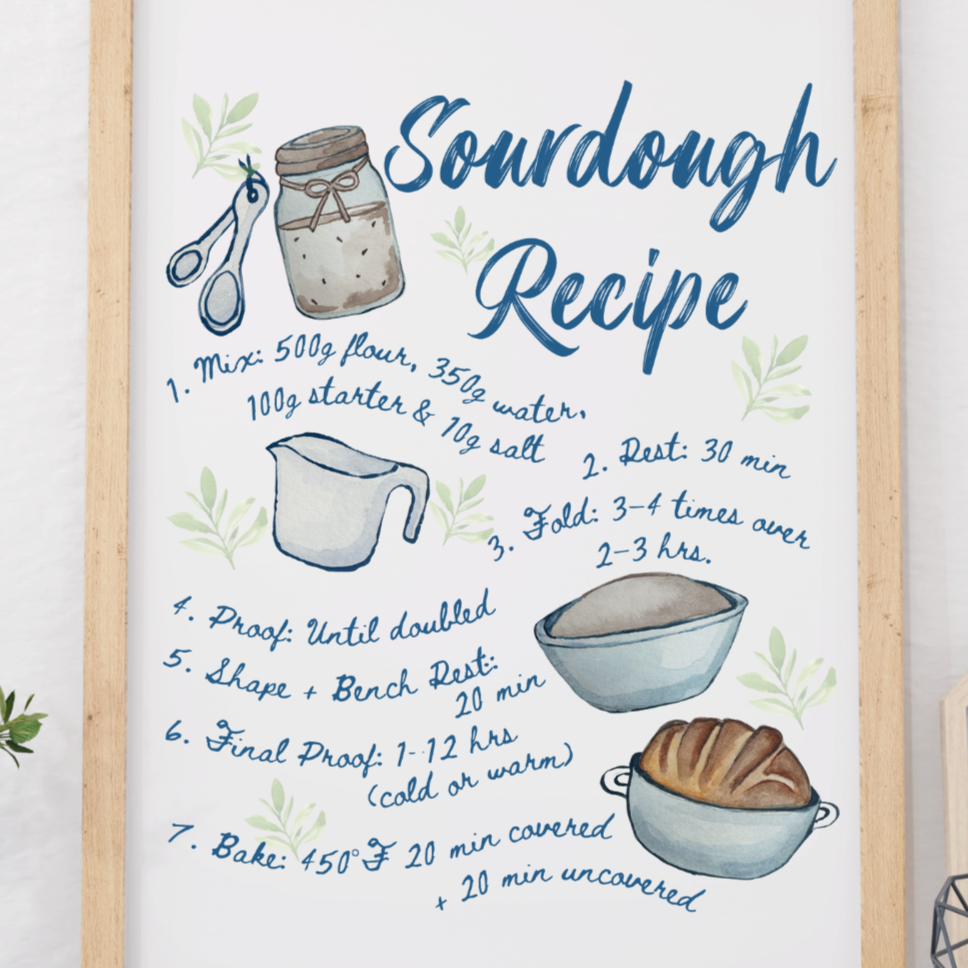 Sourdough
Recipe
1. Mix: 500g flour, 350g water,
100g starter & 10g salt
2. Rest: 30 min
3. Fold: 3-4 times over
2-3 hrs.
4. Proof: Until doubled
5. Shape + Bench Rest:
20 min
6. Final Proof: 1-12 hrs
(cold or warm)
7. Bake: 450°F 20 min covered
+ 20 min uncovered